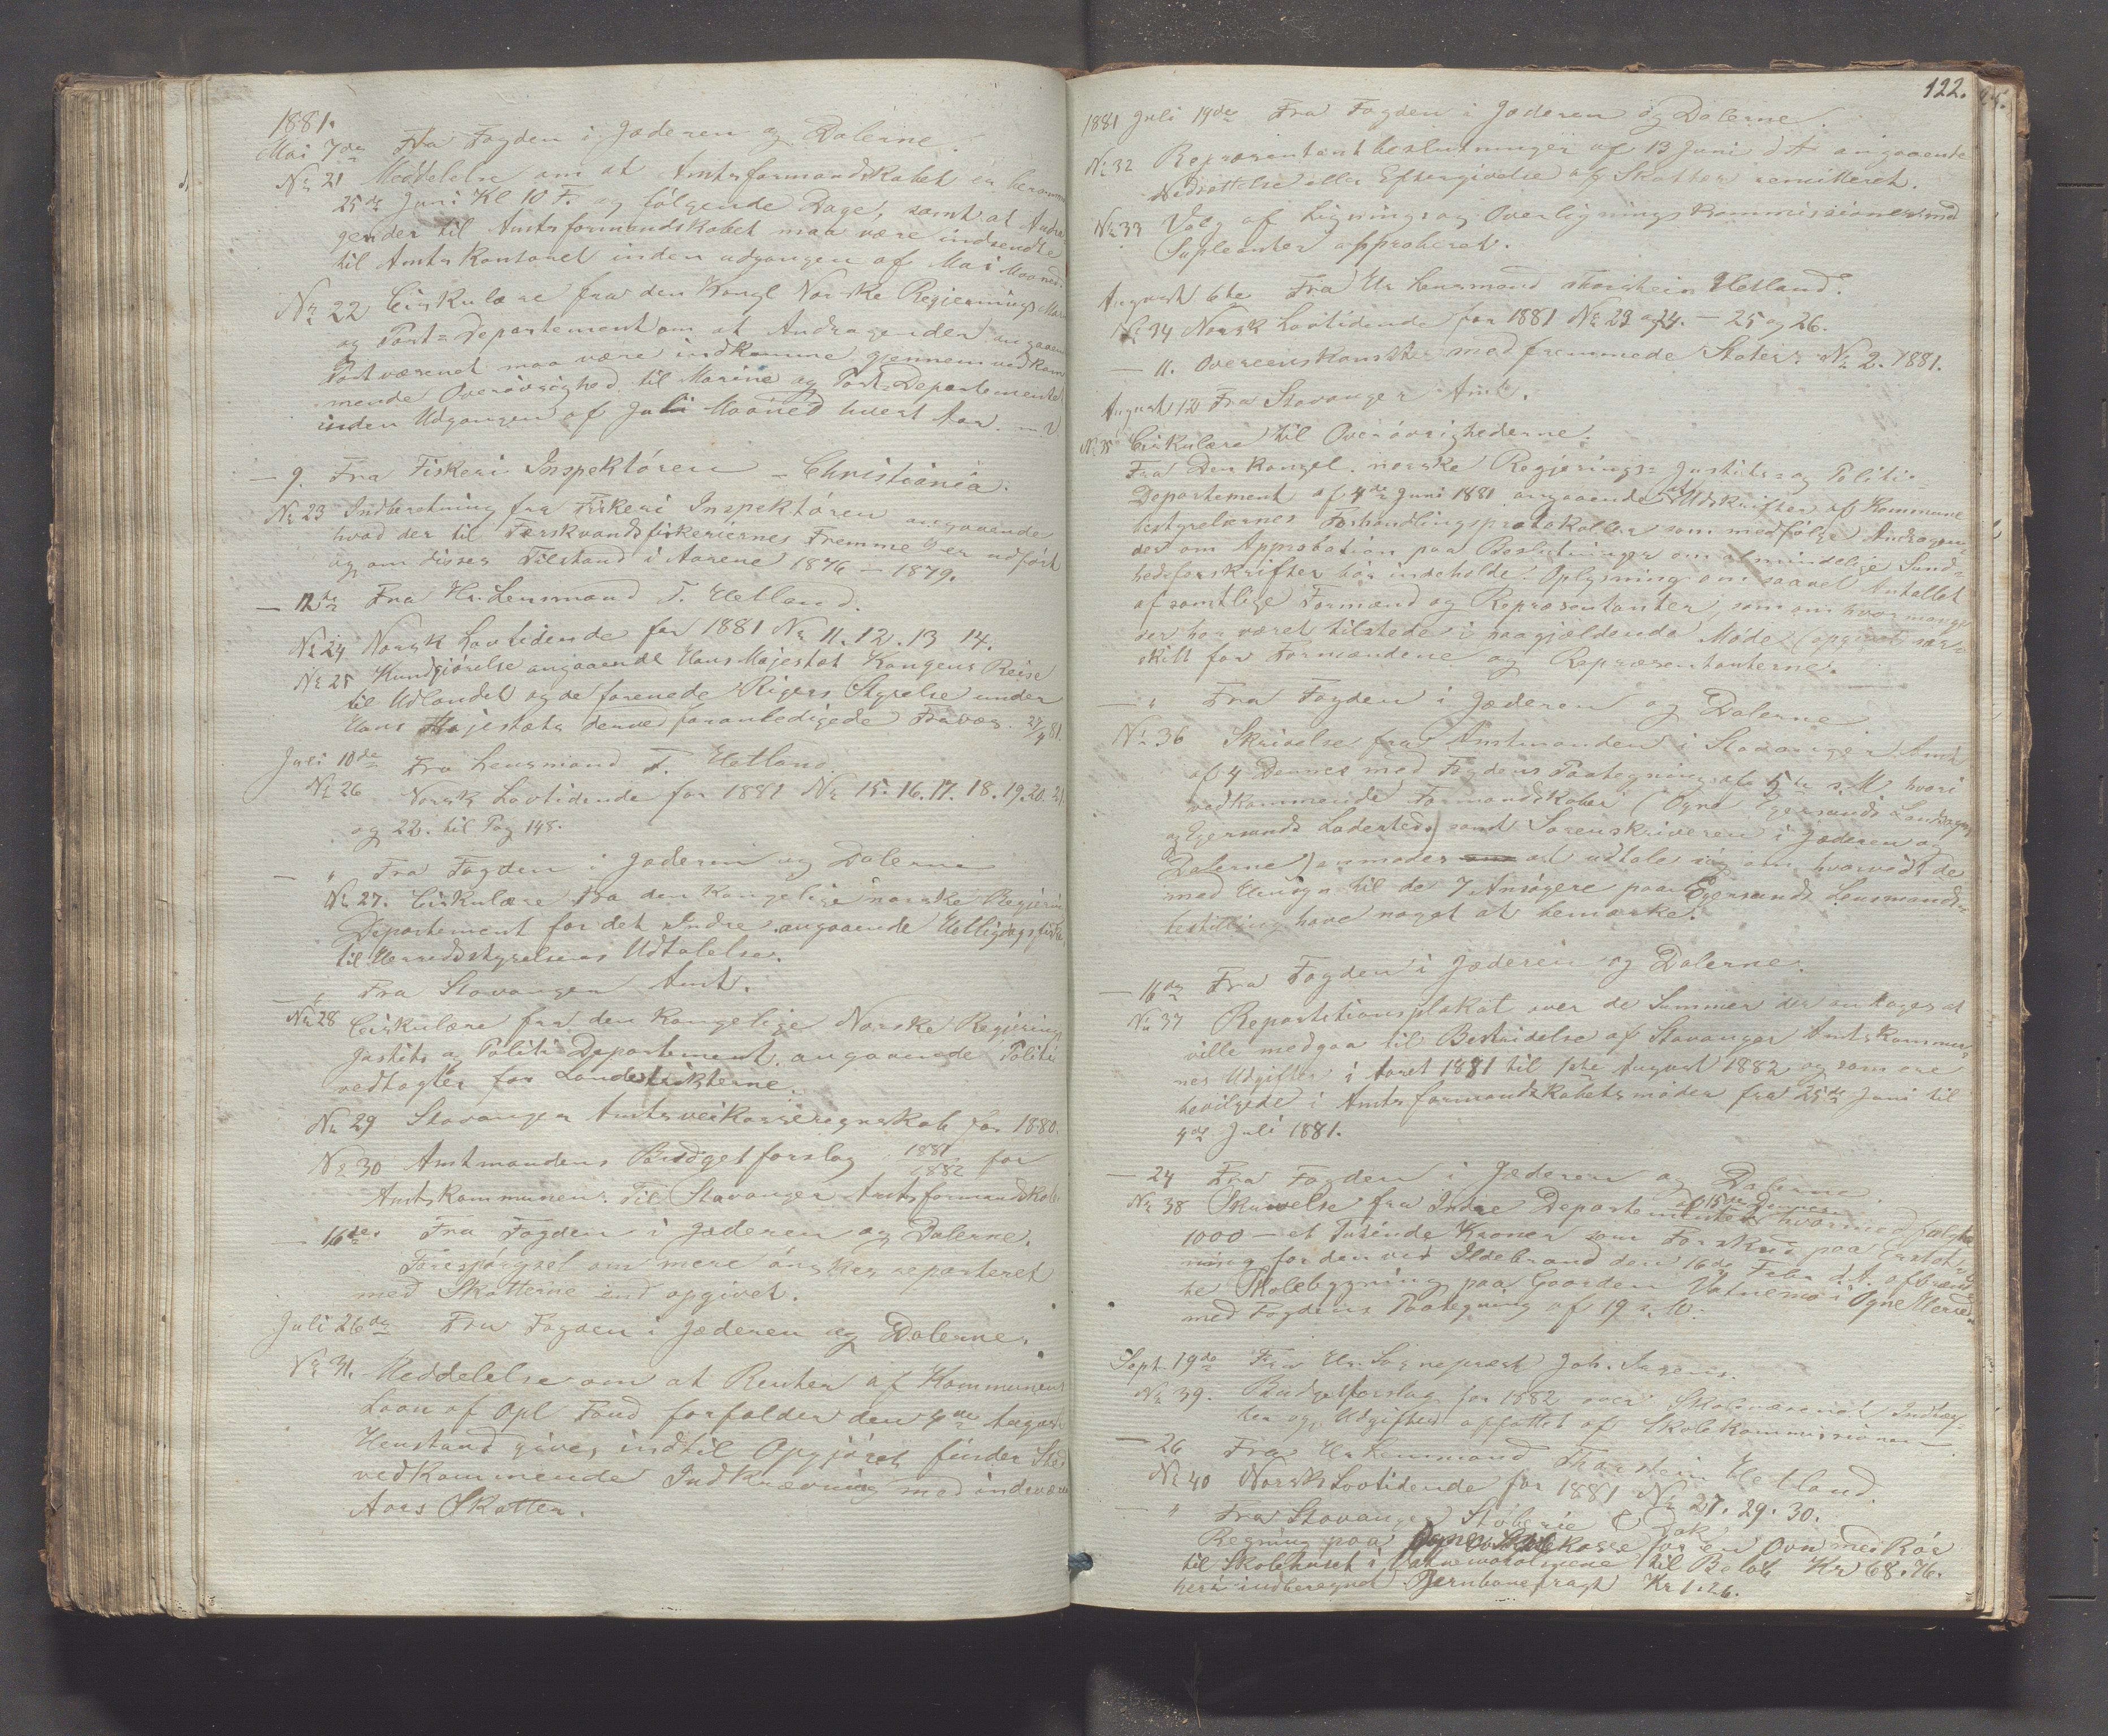 1881.
Mai 7de Fra Fogden i Jæderen og Dalerne.
No 21 Meddelelse om at Amtsformandskabet er berammet
25de Juni Kl 10 F. og følgende Dage, samt at Andra-
gender til Amtsformandskabet maa være indsendte
til Amtskontoret inden udgangen af Mai Maaned.
No 22 Cirkulære fra den Kongl Norske Regjerings Marine
og Post-Departement om at Andragender angaaende
Postvæsenet maa være indkomne gjennem vedkom
mende Overøvrighed til Marine og Post-Departementet
inden Udgangen af Juli Maaned hvert Aar.
— 9. Fra Fiskeri Inspektøren — Christiania.
No 23 Indberetning fra Fiskeri Inspektøren angaaende
hvad der til Færskvandsfiskeriernes Fremme er udført
og om disses Tilstand i Aarene 1876 — 1879.
— 12te Fra Hr. Lensmand T. Hetland.
No 24 Norsk Lovtidende for 1881 No 11. 12. 13 14.
No 25 Kundgjørelse angaaende Hans Majestæt Kongens Reise
til Udlandet og de forenede Rigers Styrelse under
Hans Majestæts derved foranledigede Fravær. 27/4 81.
Juli 10de Fra Lensmand T. Hetland
No 26 Norsk Lovtidende for 1881 No 15. 16. 17. 18. 19. 20. 21.
og 22. til Pag 148.
— " Fra Fogden i Jæderen og Dalerne
No 27. Cirkulære fra den kongelige norske Regjerin
Departement for det Indre angaaende Helligdagsfiske,
til Herredsstyrelsens Udtalelse.
— " Fra Stavanger Amt.
No 28 Cirkulære fra den Kongelige Norske Regjerings
Justits og Politi Departement angaaende Politi
vedtægter for Landdistrikterne.
No 29 Stavanger Amtsveikasseregnskab for 1880.
No 30 Amtmandens Budgetforslag 1881/1882 for
Amtskommunen. Til Stavanger Amtsformandskab
— 16de Fra Fogden i Jæderen og Dalerne.
Forespørgsel om mere ønskes reparteret
med Skatterne end opgivet.
Juli 26de Fra Fogden i Jæderen og Dalerne.
No 31. Meddelelse om at Renter af Kommunens
Laan af Opl Fond forfalder den 1ste August
Henstand gives indtil Opgjøret finder Sted
vedkommende Indkrævning med indevær
Aars Skatter.
122.
1881 Juli 19de Fra Fogden i Jæderen og Dalerne.
No 32 Repræsentantbeslutninger af 13 Juni d A angaaende
Nedsættelse eller Eftergivelse af Skatter remitteret.
No 33 Valg af Lignings og Overligningskommissioner med
Supleanter approberet.
August 6te Fra Hr Lensmand Thorstein Hetland.
No 34 Norsk Lovtidende for 1881 No 23 og 24. — 25 og 26.
— 11. Overenskomster med fremmede Stater. No 2. 1881.
August 12 Fra Stavanger Amt.
No 35 Cirkulære til Overøvrighederne.
Fra Den kongel. norske Regjerings- Justits- og Politi-
Departement af 4de Juni 1881 angaaende at Udskrifter af Kommune
bestyrelsernes Forhandlingsprotokoller som medfølge Andragen-
der om Approbation paa Beslutninger om almindelige Sund-
hedsforskrifter bør indeholde Oplysning om saavel Antallet
af samtlige Formænd og Repræsentanter, som om hvor mange
der har været tilstede i paagjældende Møde (opgivet sær-
skilt for Formændene og Repræsentanterne.
— " Fra Fogden i Jæderen og Dalerne
No 36 Skrivelse fra Amtmanden i Stavanger Amt
af 4 Dennes med Fogdens Paategning af 5te s. M hvori
vedkommende Formandskaber (Ogne Egersunds Landsogn
og Egersunds Ladested) samt Sorenskriveren i Jæderen og
Dalerne) anmodes om at udtale sig om hvorvidt de
med Hensyn til de 7 Ansøgere paa Egersunds Lensmands-
bestilling have noget at bemærke.
— 16de Fra Fogden i Jæderen og Dalerne.
No 37 Repartitionsplakat over de Summer der antages at
ville medgaa til Bestridelse af Stavanger Amtskommu-
nes Udgifter i Aaret 1881 til 1ste August 1882 og som ere
bevilgede i Amtsformandskabets møder fra 25de Juni til
4de Juli 1881.
— 24 Fra Fogden i Jæderen og Dalerne.
No 38 Skrivelse fra Indre Departementet af 15de Dennes hvormed følger
1000 — et Tusinde Kroner som Forskud paa Erstat-
ning for den ved Ildebrand den 16de Febr d. A. afbrænd-
te Skolebygning paa Gaarden Vatnemo i Ogne Herred
med Fogdens Paategning af 19 s. M.
Sept. 19de Fra Hr. Sognepræst Joh.
No 39. Budgetforslag for 1882 over Skolevæsenet Indtæg-
ter og Udgifter opsattet af Skolekommissionen.
— 26 Fra Hr Lensmand Thorstein Hetland.
No 40 Norsk Lovtidende for 1881 No 27. 29. 30.
— " Fra Stavanger Støberie & Dok
Regning paa Ogne Skolekasse for en Ovn med Rør
til Skolehuset i til Beløb Kr 68.76.
heri indberegnet Jernbanefragt Kr 1.26.